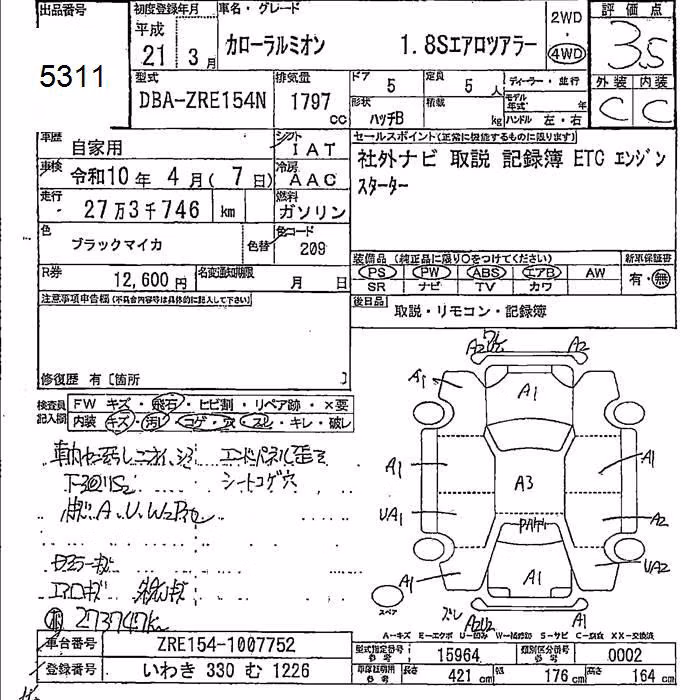 出品番号
5311
初度登録年月
平成
21 3月
車名・グレード
カローラルミオン 1.8Sエアロツアラー
2WD
・
4WD
評価点
3.5
外装 内装
C C
型式
DBA-ZRE154N
排気量
1797
cc
ドア 5
定員 5 人
ディーラー・並行
形状 ハッチB
積載 kg
モデル年式 年
ハンドル 左・右
車歴 自家用
シフト IAT
車検 令和10年 4月( 7日)
冷房 AAC
走行 27万3千746 km
燃料 ガソリン
色 ブラックマイカ
色替
色コード 209
R券 12,600円
名変通知期限 月 日
セールスポイント(正常に機能するものに限ります)
社外ナビ 取説 記録簿 ETC エンジン
スターター
装備品 (純正品に限り○をつけてください)
PS PW ABS エアB AW
SR ナビ TV カワ
新車保証書
有・無
後日品 取説・リモコン・記録簿
注意事項申告欄(不具合内容等は具体的に記入して下さい)
修復歴 有〔箇所 〕
検査員記入欄
FW キズ・飛石・ヒビ割・リペア跡・×要
内装 キズ・汚レ・コゲ・穴・スレ・キレ・破レ
エンドパネル歪ミ
シートコゲ穴
A.U.W2
エアロキズ
273747K
A2 A2
A1 A1
A1 A3 A1
UA1 A2
A1 A1 UA2
ズレ A2U2 A1
スペア
A-キズ E-エクボ U-凹み W-補修跡 S-サビ C-腐食 XX-交換済
車台番号 ZRE154-1007752
登録番号 いわき 330 む 1226
型式指定番号 15964
類別区分番号 0002
長さ 421 cm 幅 176 cm 高さ 164 cm